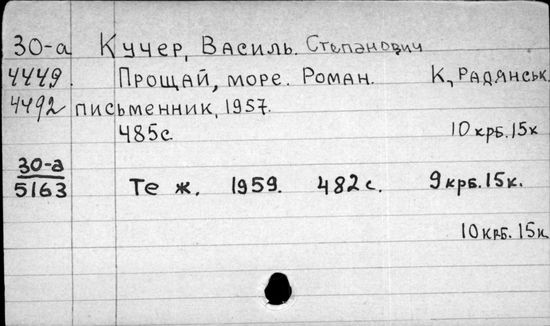 30-а Кучер, Василь. Степанович
4449. Прощай, море. Роман. К, Радянськ.
4492 письменник, 1957.
485с. 10крб.15к
30-а
5163 Те ж. 1959. 482с. 9крб.15к.
10крб.15к